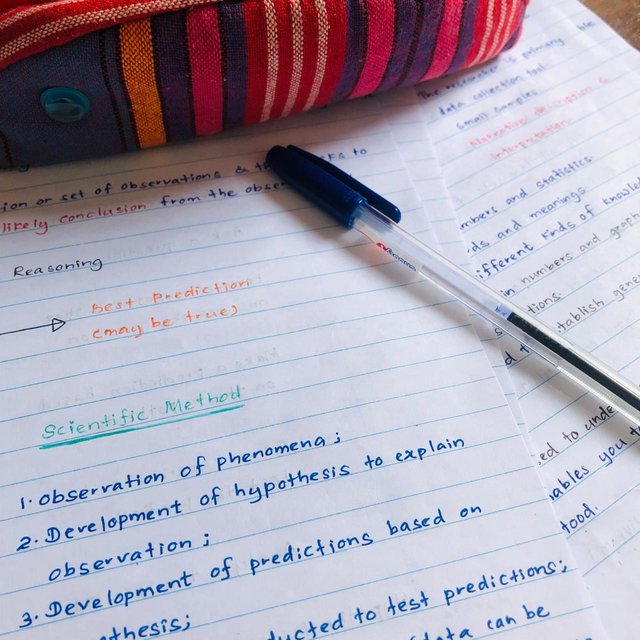 ion or set of observations & to
likely conclusion from the
Reasoning
Best Prediction
(may be true)
Scientific Method
1. Observation of phenomena;
2. Development of hypothesis to explain
observation;
3. Development of predictions based on
thesis;
ducted to test predictions;
data can be
The researcher is primary
data collection tool
small samples
Narrative description &
interpretation
mbers and statistics
ds and meanings.
ifferent kinds of knowled
in numbers and grap
tions
tablish gene
ed to unde
ables you t
tood.